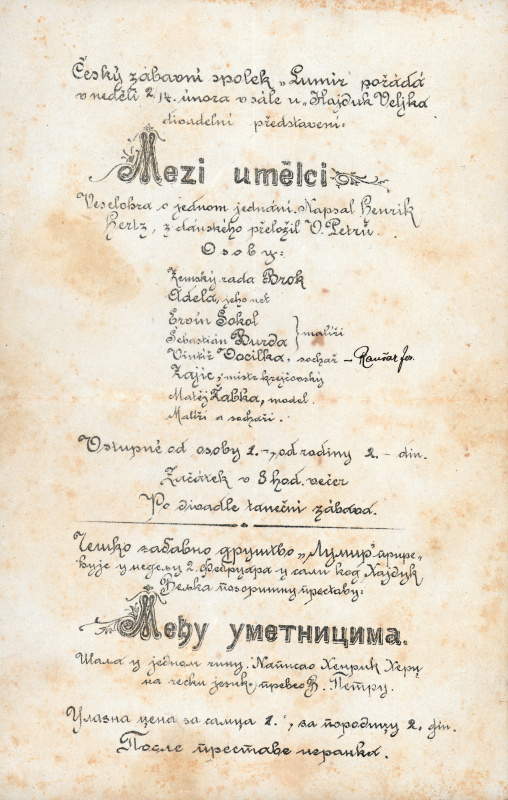 Český zábavní spolek „Lumír" pořádá
v neděli 2/14. února v sále u „Hajduk Veljka
divadelní představení:
Mezi umělci
Veselohra o jednom jednání. Napsal Henrik
Hertz, z dánského přeložil O. Petrů.
Osoby:
Zemský rada Brok
Adéla, jeho neť
Ervín Sokol
Šebastián Burda } malíři
Vintíř Vocilka, sochař –
Zajíc, mistr krejčovský
Matěj Žabka, model.
Malíři a sochaři.
Vstupné od osoby 1.–, od rodiny 2.– din.
Začátek v 8 hod. večer
Po divadle taneční zábava.
Чешко забавно друштво „Лумир" прире-
ђује у недељу 2. Фебруара у сали код Хајдук
Вељка позоришну преставу:
Међу уметницима.
Шала у једном чину. Написао Хенрик Херц
на чески језик превео В. Петру.
Улазна цена за самца 1., за породицу 2. дин.
После преставе игранка.